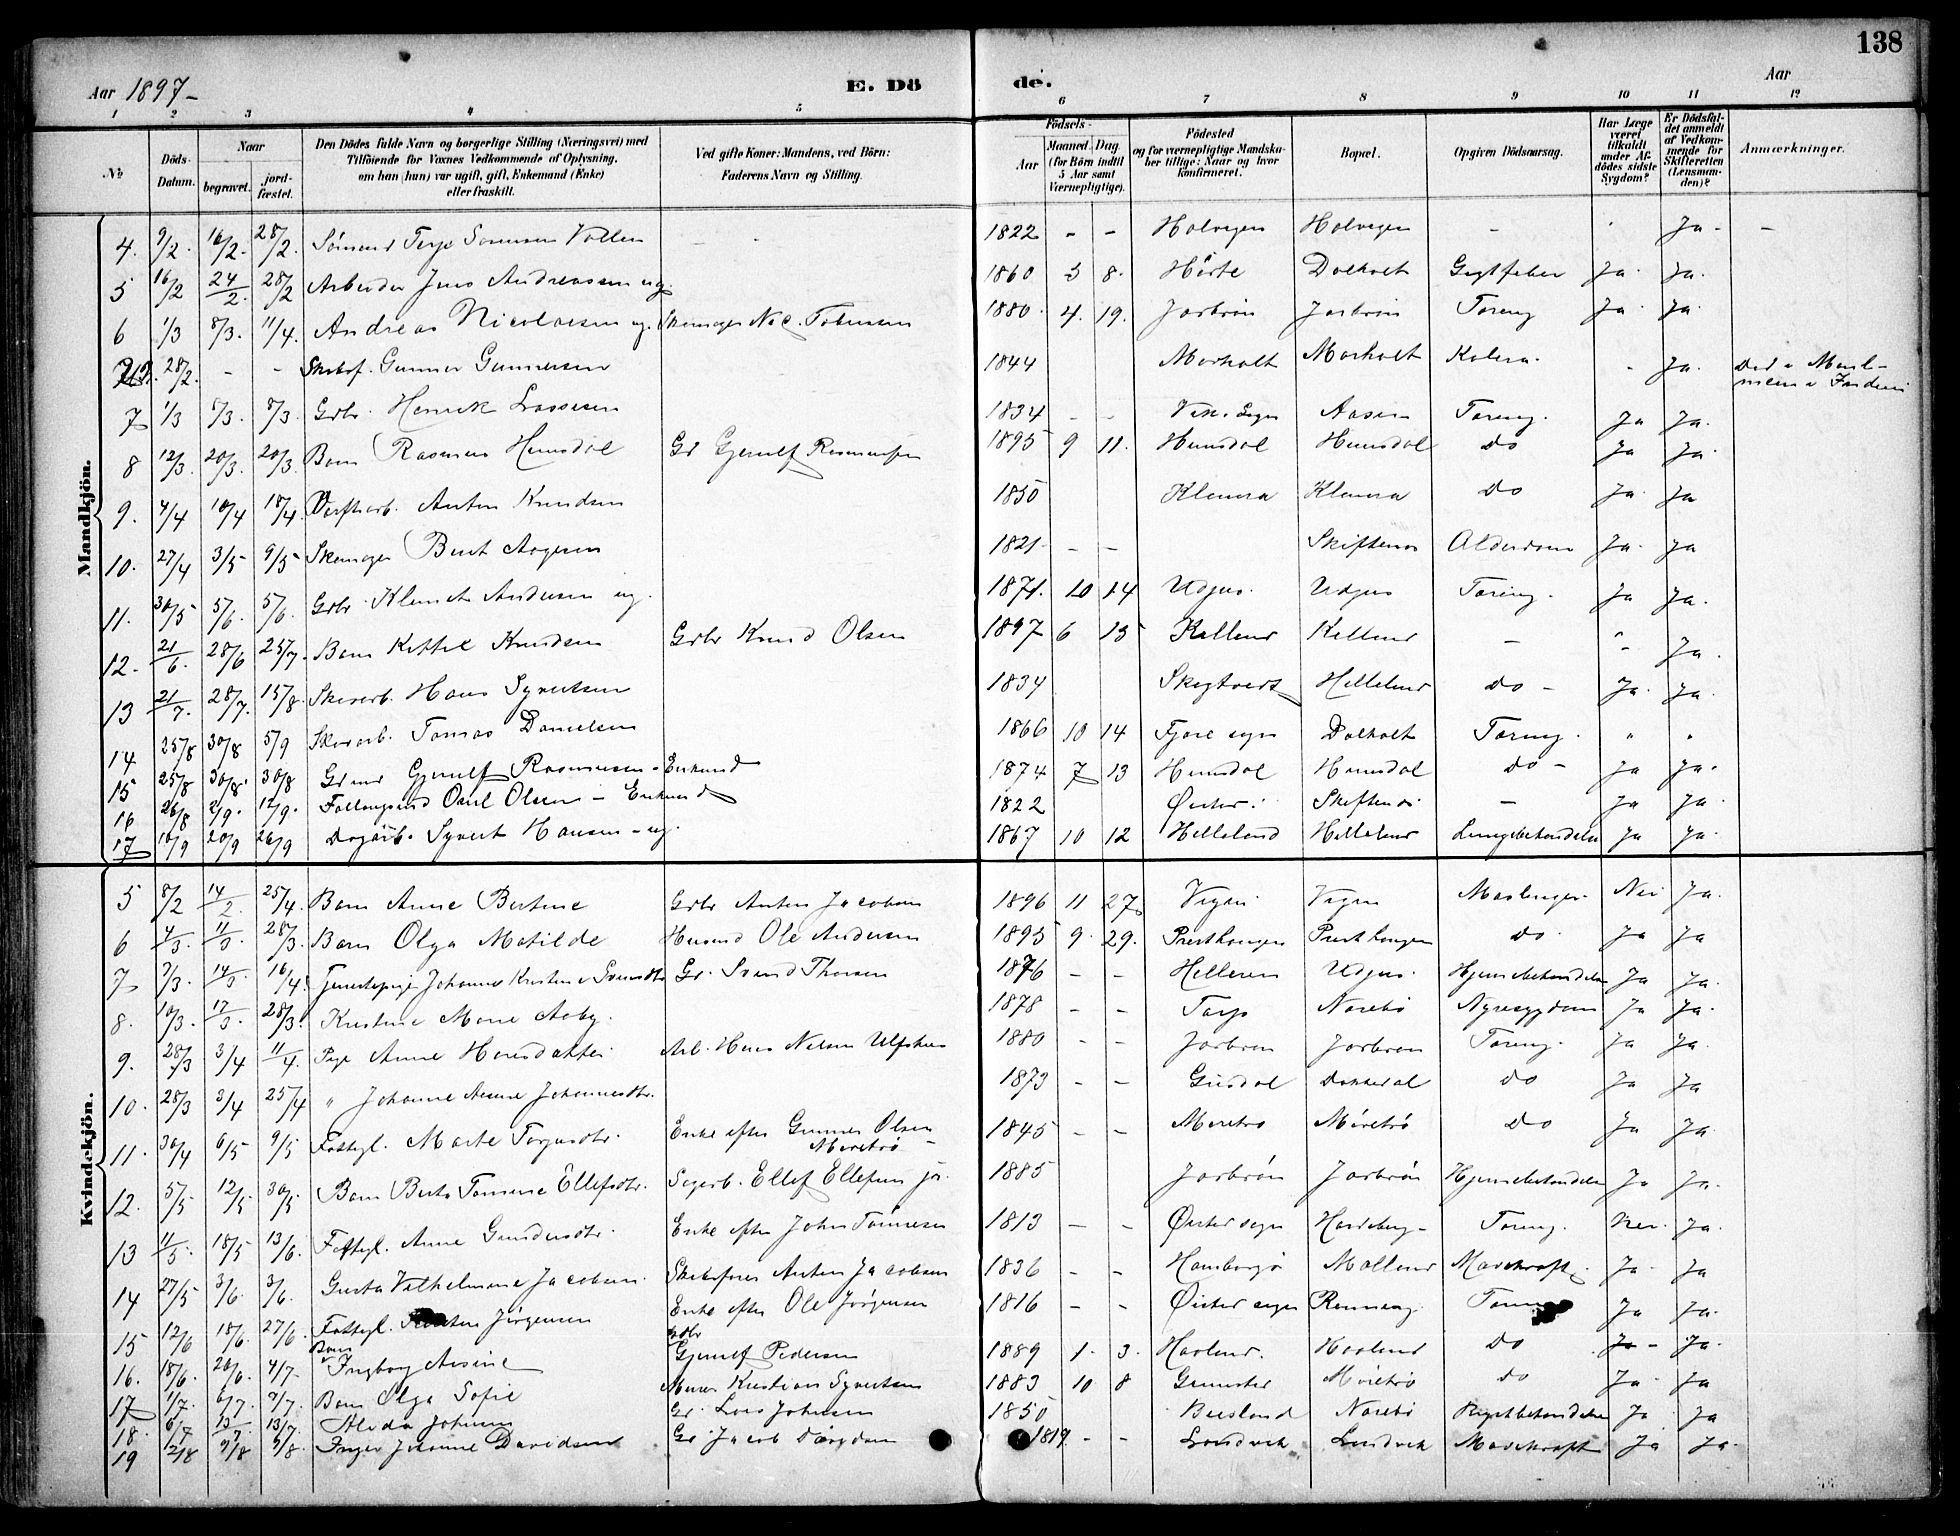 138
Aar 1897 - E. Dö de. Aar
1 2 3 4 5 6 7 8 9 10 11 12
№ Döds-Datum. Naar begravet. jordfæstet. Den Dödes fulde Navn og borgerlige Stilling (Næringsvei) med Tilföiende for Voxnes Vedkommende af Oplysning, om han (hun) var ugift, gift, Enkemand (Enke) eller fraskilt. Ved gifte Koner: Mandens, ved Börn: Faderens Navn og Stilling. Födsels- Aar Maaned Dag (for Börn indtil 5 Aar samt Værnepligtige). Födested og for værnepligtige Mandskaber tillige: Naar og hvor konfirmeret. Bopæl. Opgiven Dödsaarsag. Har Læge været tilkaldt under Afdödes sidste Sygdom? Er Dödsfaldet anmeldt af Vedkommende for Skifteretten (Lensmanden)? Anmærkninger.
Mandkjön.
4. 9/2. 16/2. 28/2. Sömand Terje Sorensen Vollen 1822 - - Holvigen Holvigen - Ja - -
5 16/2 24/2. 28/2 Arbeider Jens Andreassen ug. 1860 3 8. Hörte Dolholt Gigtfeber Ja. Ja.
6 1/3 8/3. 11/4. Andreas Nicolaisen ug. Skomager Nic. Tobiassen 1880. 4. 19. Jorbrön Jorbrön Tæring Ja. Ja.
28/2. - - Skibsf. Gunner Gunnersen 1844 Morholt Morholt Kolera. Ja.
7 1/3 8/3. 8/3. Gbr. Henrik Lassesen 1834 - - Aasen Tæring. Ja Ja.
8 12/3. 20/3. 20/3. Barn Rasmus Humsdal Gd Gjerulf Rasmussen 1895 9 11. Humsdal Humsdal Do Ja Ja.
9. 4/4 10/4 18/4. Værftarb. Anton Knudsen 1850 Klemra Klemra Do Ja. Ja
10. 27/4 3/5 9/5 Skomager Berit Aagesen 1821. - - Skiftenes Alderdom Ja. Ja
11. 30/5 5/6. 5/6. Gbr. Klemet Andersen ug. 1871. 10 14 Udjus. Udjus Tæring. Ja Ja.
12. 21/6. 28/6 25/7. Barn Kittel Knudsen Gbr Knud Olsen 1897 6 15 Kallend Kallend - - Ja.
13 21/7. 28/7. 15/8. Skovarb. Hans Syvertsen 1834 Skigtvert Hellelend Do - Ja. Ja.
14 25/8 30/8 5/9 Skovarb. Tomas Danielsen 1866 10 14 Fjære sogn Dolholt Tæring. " "
15 25/8 30/8. 30/8 Gdmd Gjerulf Rasmussen - Enkemd 1874 7 13 Humsdal Humsdal Do - Ja Ja.
16 26/8 2/9. 12/9. Fattiglem Omd Olsen - Enkemd 1822 Öiester Skiftenes - Ja Ja.
17 10/9 20/9 26/9 Dagarb. Syvert Hansen - ug. 1867 10 12 Helleland Hellelend Lungebetændelse Ja Ja.
Kvindekjön.
5 8/2 14/2. 25/4. Barn Anne Bertine Gbr Anton Jacobsen 1896 11 27 Vigen Vigen Mæslinger. Nei Ja.
6 4/3. 11/3. 28/3. Barn Olga Matilde Husmd Ole Andersen 1895 9. 29. Presthougen Presthougen Do Ja Ja
7 7/3. 14/3. 16/4. Tjenestepige Johanne Kristine Svendsdtr Gd. Svend Thorsen 1876 - - Helleren Udjus. Hjernebetændelse Ja Ja.
8. 10/3. 17/3. 28/3. Kristine Marie Aaby. 1878 - - Torp Norebö Nyresygdom Ja Ja.
9. 28/3 3/4 11/4. Pige Anne Hansdatter Arb. Hans Nilsen Ulfsken 1880 - - Jorbron Jorbron Tæring. Ja Ja.
10. 28/3 3/4 25/4 " Johanne Amine Johannesdtr. 1873 - - Gusdal Donnedal Do Ja Ja
11. 30/4 6/5 9/5 Fattigl. Marte Torjusdtr. Enke efter Gunner Olsen Moretrö - 1845 - - Moretro Möretrö Do Ja Ja.
12. 5/5 12/5 30/5. Barn Berte Tomine Ellefsdtr. Sagarb. Ellef Ellefsen jr. 1885 Jorbrön Jorbrön Hjernebetændelse Ja Ja.
13 11/5. 18/5 13/6. Fattigl. Anne Gundersdtr. Enke efter John Tönnesen 1813 - - Öiestad sogn Hardeberg - Tæring. Nei. Ja.
14 27/5 3/6. 3/6. Gusta Vilhelmine Jacobsen. Skibsförer Anton Jacobsen 1836 - - Homborgö Mollend Mavekræft. Ja. Ja
15 12/6 18/6. 27/6. Fattigl. Jörgensen Enke efter Ole Jörgensen 1816 - - Öiestad sogn Ja Ja.
16. 18/6. 20/6. 4/7. Barn Ingborg Amine Gbr Gjerulf Pedersen 1889 1. 3. Haalend. Haalend Do Ja - Ja.
17 1/7. 6/7. 7/7. Barn Olga Sofie Murer Kristian Syvertsen 1883 10 8 Grimstad Möretrö Do Ja. Ja
18. 6/7 13/7 13/7. Alida Johnsen Gd. Lars Johnsen 1850 Beisland Norebö Brystbetændelse Ja. Ja
19 12/8 9/8 9/8. Inger Johanne Davidsen Gd. Jacob 1819. - - Landvik Landvik Mavekræft Ja Ja.